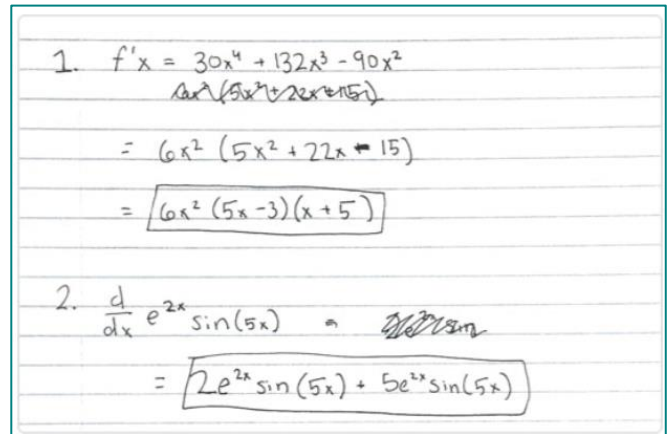 1. f'x = 30x⁴ + 132x³ - 90x²
= 6x² (5x² + 22x - 15)
= 6x² (5x - 3)(x + 5)
2. d/dx e²ˣ sin(5x) =
= 2e²ˣ sin(5x) + 5e²ˣ sin(5x)